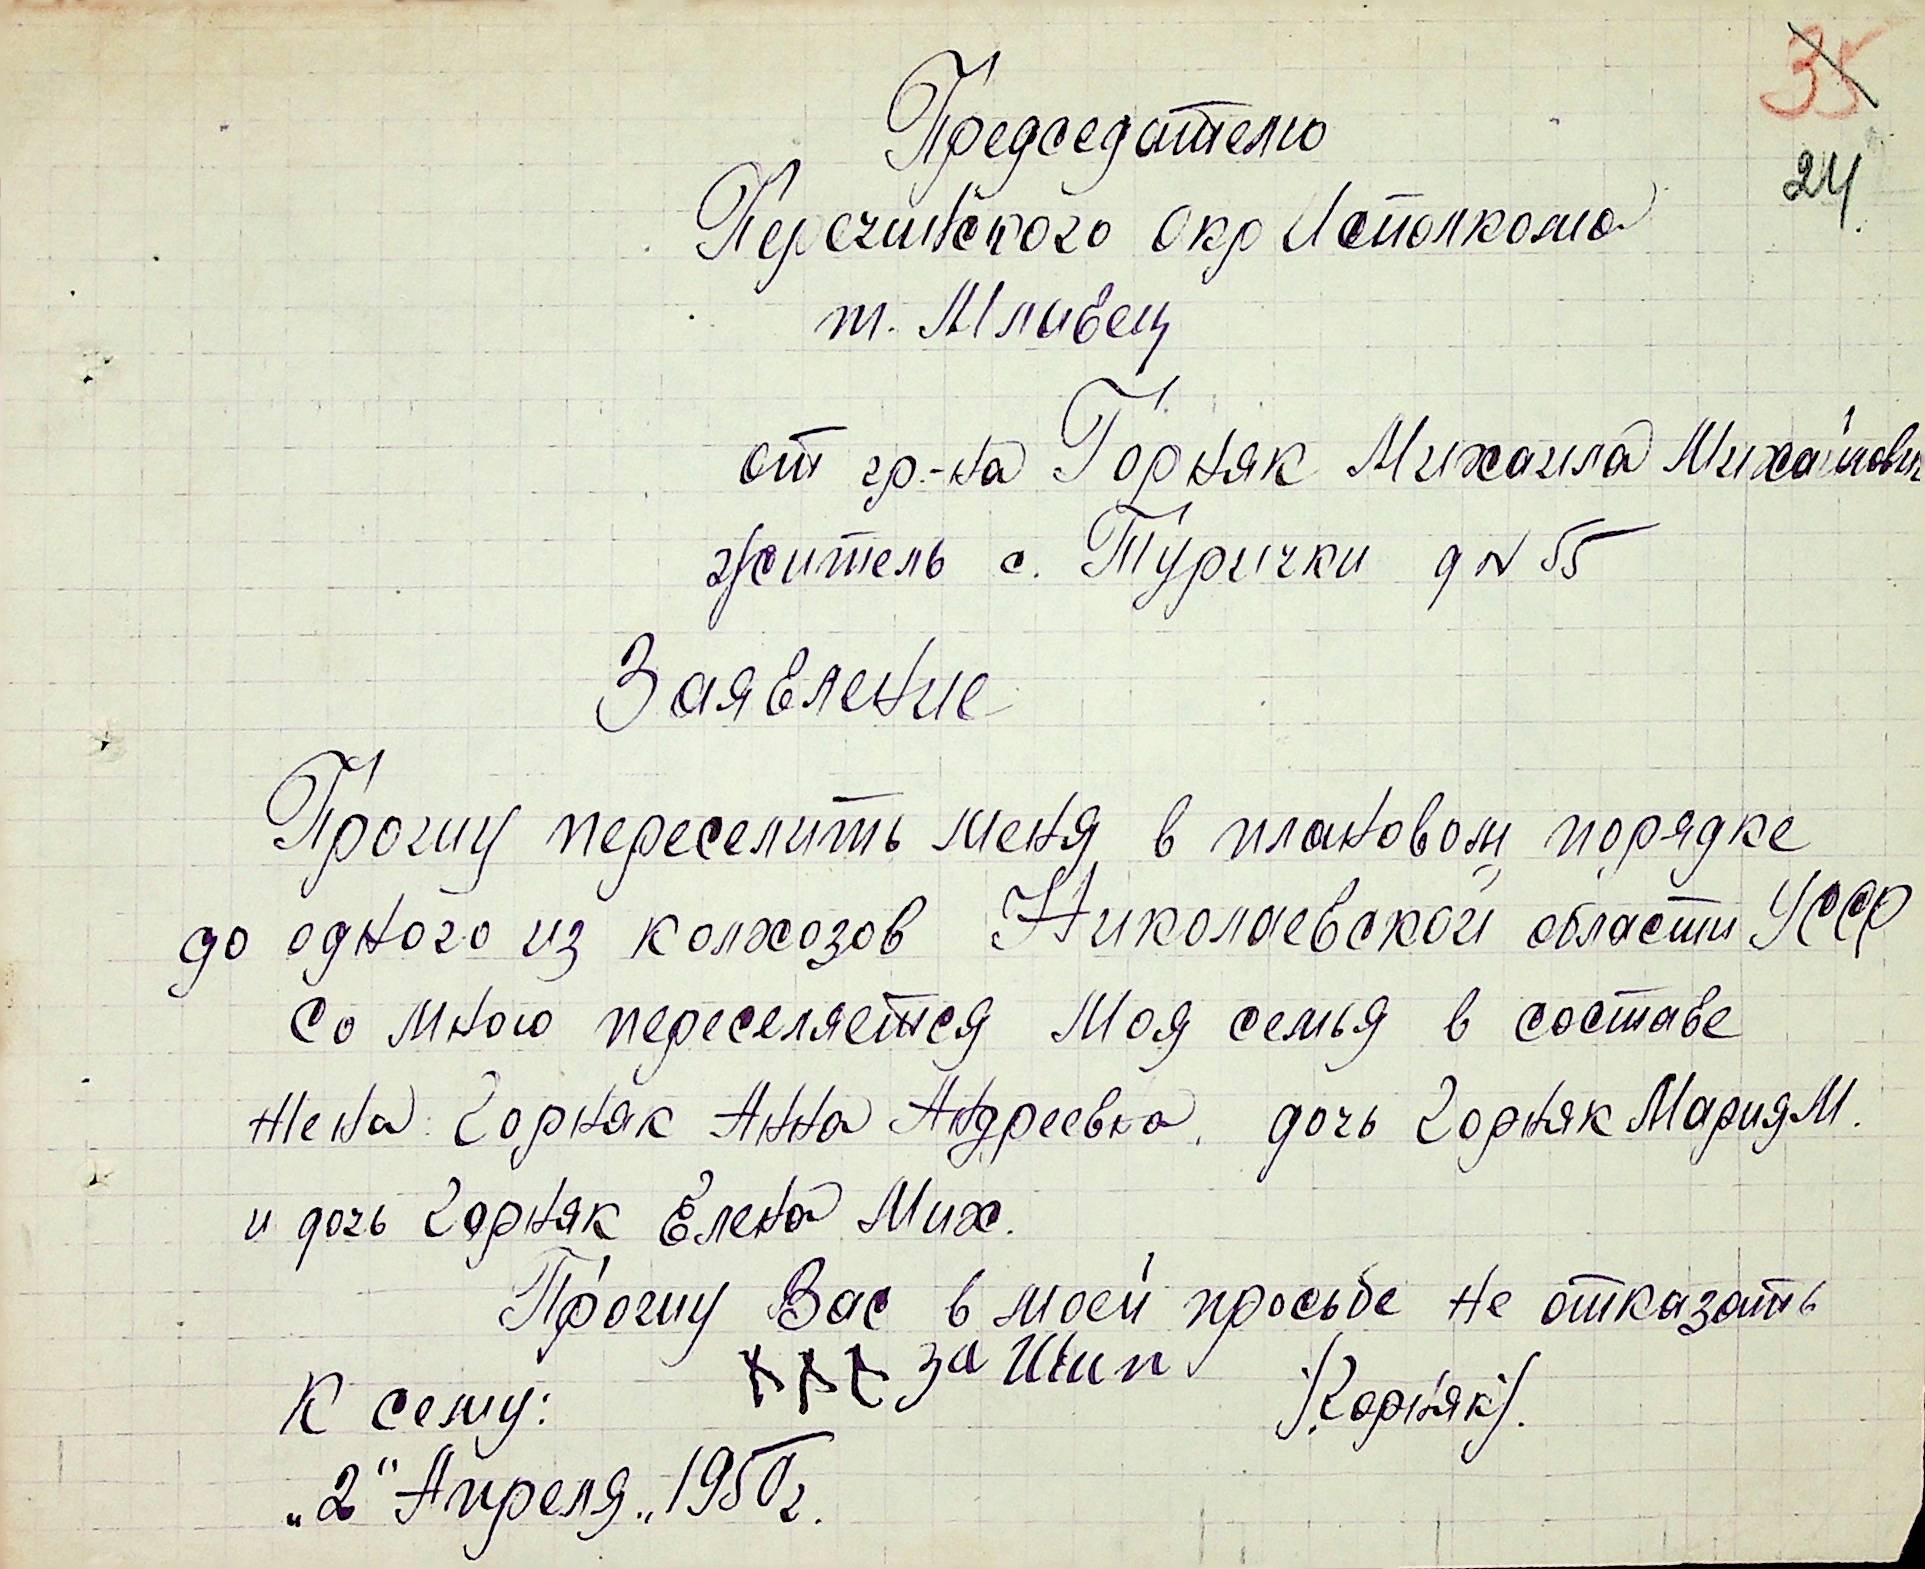 35
24.
Председателю
Перечинского Окр Исполкома
т. Мливец
от гр.-на Горняк Михаила Михайлович
житель с. Турички д N 55
Заявление
Прошу переселить меня в плановом порядке
до одного из колхозов Николаевской области УССР
Со мною переселяется Моя семья в составе
жена Горняк Анна Андреевна. дочь Горняк Мария М.
и дочь Горняк Елена Мих.
Прошу Вас в моей просьбе не отказать
К сему: за
/Горняк/.
„2“ Апреля„ 1950 г.